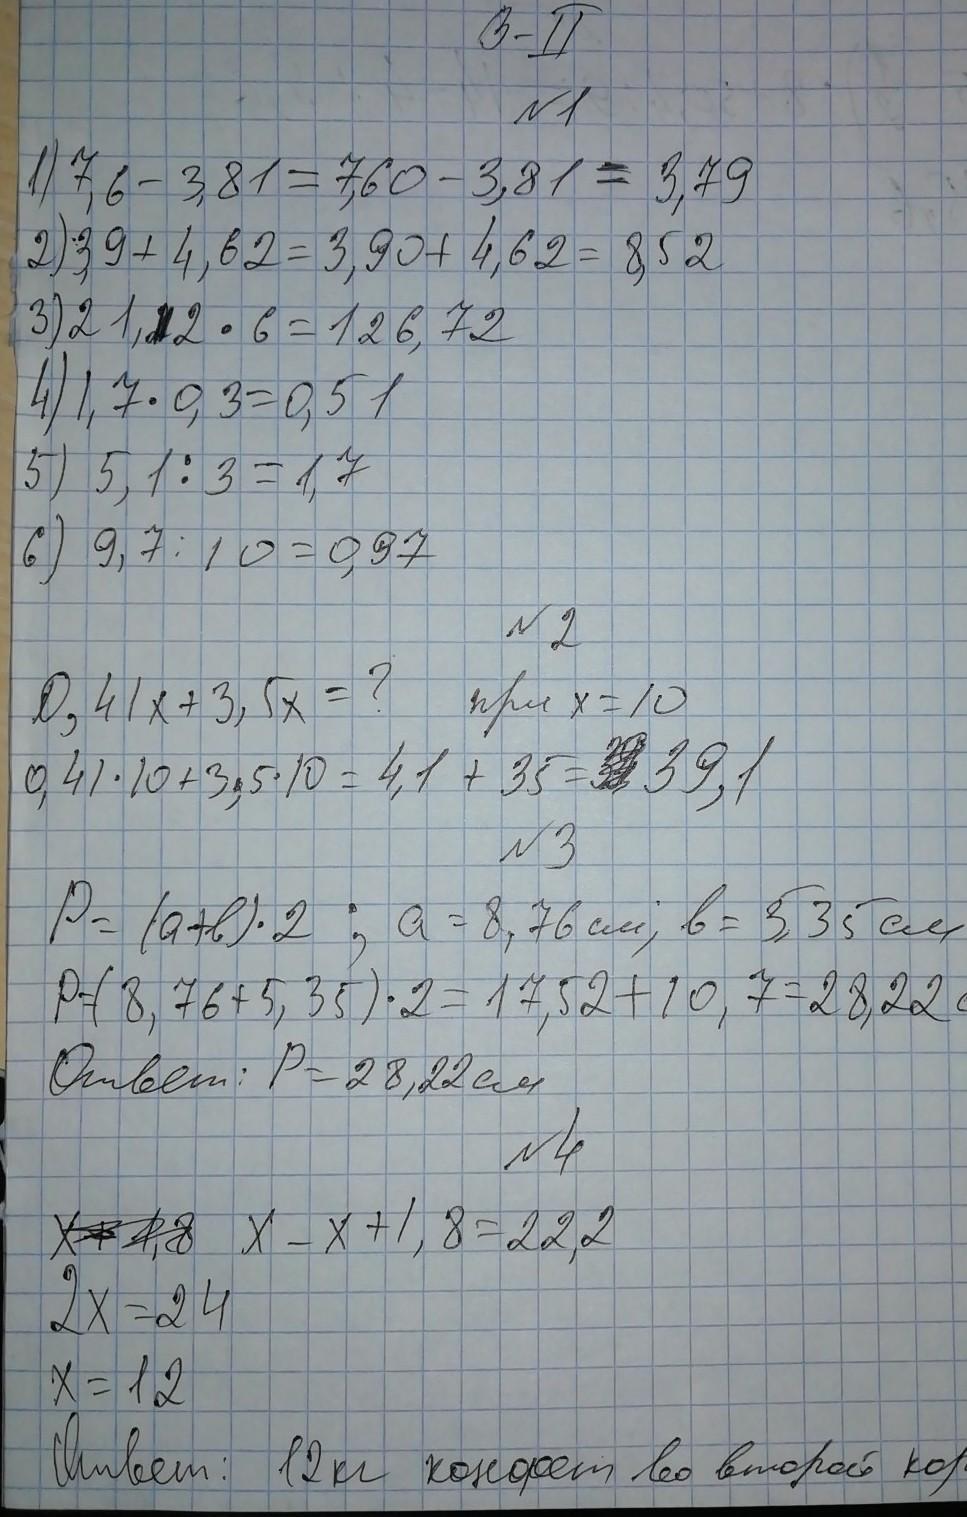 В-II
№1
1) 7,6 - 3,81 = 7,60 - 3,81 = 3,79
2) 3,9 + 4,62 = 3,90 + 4,62 = 8,52
3) 21,12 · 6 = 126,72
4) 1,7 · 0,3 = 0,51
5) 5,1 : 3 = 1,7
6) 9,7 : 10 = 0,97
№2
0,41x + 3,5x = ? при x = 10
0,41 · 10 + 3,5 · 10 = 4,1 + 35 = 39,1
№3
P = (a+b) · 2 ; a = 8,76 см; b = 5,35 см
P = (8,76 + 5,35) · 2 = 17,52 + 10,7 = 28,22 с
Ответ: P = 28,22 см
№4
x + 1,8 x - x + 1,8 = 22,2
2x = 24
x = 12
Ответ: 12 кг конфет во второй кор